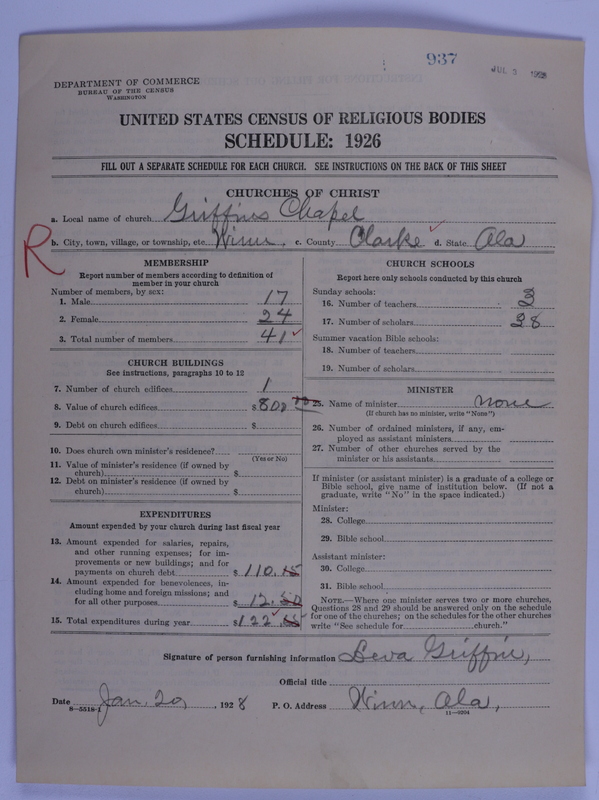 937
JUL 3 1928
DEPARTMENT OF COMMERCE
BUREAU OF THE CENSUS
WASHINGTON
UNITED STATES CENSUS OF RELIGIOUS BODIES
SCHEDULE: 1926
FILL OUT A SEPARATE SCHEDULE FOR EACH CHURCH. SEE INSTRUCTIONS ON THE BACK OF THIS SHEET
CHURCHES OF CHRIST
a. Local name of church Griffins Chapel
R
b. City, town, village, or township, etc. Winn, c. County Clarke d. State Ala
MEMBERSHIP
Report number of members according to definition of
member in your church
Number of members, by sex:
1. Male 17
2. Female 24
3. Total number of members 41
CHURCH BUILDINGS
See instructions, paragraphs 10 to 12
7. Number of church edifices 1
8. Value of church edifices $800
9. Debt on church edifices $
10. Does church own minister's residence?
(Yes or No)
11. Value of minister's residence (if owned by
church) $
12. Debt on minister's residence (if owned by
church) $
EXPENDITURES
Amount expended by your church during last fiscal year
13. Amount expended for salaries, repairs,
and other running expenses; for im-
provements or new buildings; and for
payments on church debt $110.15
14. Amount expended for benevolences, in-
cluding home and foreign missions; and
for all other purposes $12.50
15. Total expenditures during year $122.65
CHURCH SCHOOLS
Report here only schools conducted by this church
Sunday schools:
16. Number of teachers 3
17. Number of scholars 38
Summer vacation Bible schools:
18. Number of teachers
19. Number of scholars
MINISTER
25. Name of minister none
(If church has no minister, write "None")
26. Number of ordained ministers, if any, em-
ployed as assistant ministers
27. Number of other churches served by the
minister or his assistants
If minister (or assistant minister) is a graduate of a college or
Bible school, give name of institution below. (If not a
graduate, write "No" in the space indicated.)
Minister:
28. College
29. Bible school
Assistant minister:
30. College
31. Bible school
NOTE.—Where one minister serves two or more churches,
Questions 28 and 29 should be answered only on the schedule
for one of the churches; on the schedules for the other churches
write "See schedule for church."
Signature of person furnishing information Beva Griffin,
Official title
Date Jan. 20, 1928 P. O. Address Winn, Ala,
8—5518-1 11—9204